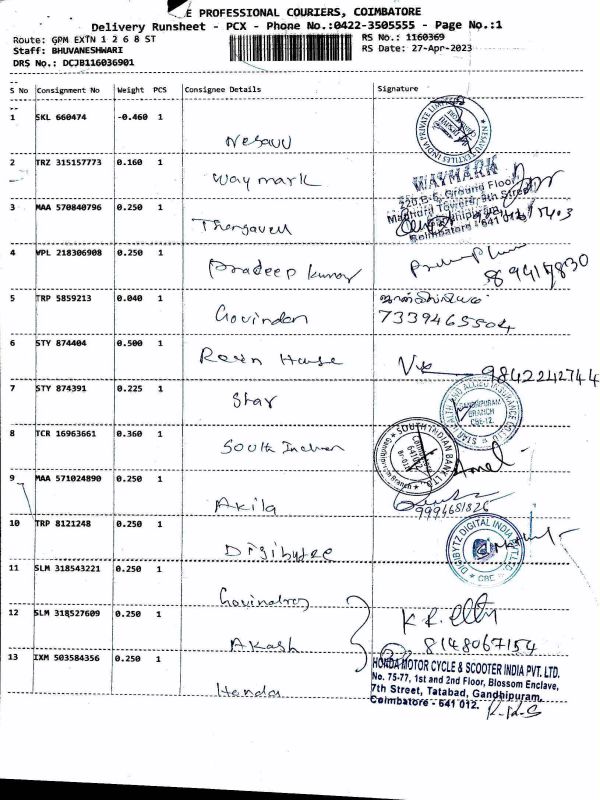 E PROFESSIONAL COURIERS, COIMBATORE
Delivery Runsheet - PCX - Phone No.:0422-3505555 - Page No.:1
Route: GPM EXTN 1 2 6 8 ST
RS No.: 1160369
Staff: BHUVANESHWARI
RS Date: 27-Apr-2023
DRS No.: DCJB116036901
S No Consignment No Weight PCS Consignee Details Signature
1 SKL 660474 -0.460 1
Nesavu
NESAVU TEXTILES INDIA PRIVATE LIMITED
2 TRZ 315157773 0.160 1
Way mark
WAYMARK
Ground Floor
Madhura Towers, 9th Street
3 MAA 570840796 0.250 1
Thangavell
Coimbatore - 641
4 VPL 218306908 0.250 1
Pradeep Kumar
5 TRP 5859213 0.040 1
Govindan
7339465504
6 STY 874404 0.500 1
House
9842242744
7 STY 874391 0.225 1
Star
STAR HEALTH AND ALLIED INSURANCE CO LTD
GANDHIPURAM
BRANCH
CBE-12
8 TCR 16963661 0.360 1
South Indian
SOUTH INDIAN BANK LTD
Gandhipuram Branch
9 MAA 571024890 0.250 1
Akila
9994681826
10 TRP 8121248 0.250 1
DIGIBYTZ DIGITAL INDIA PVT LTD
CBE
11 SLM 318543221 0.250 1
Govindraj
12 SLM 318527609 0.250 1
Akash
8148067154
13 IXM 503584356 0.250 1
Honda
HONDA MOTOR CYCLE & SCOOTER INDIA PVT. LTD.
No. 75-77, 1st and 2nd Floor, Blossom Enclave,
7th Street, Tatabad, Gandhipuram,
Coimbatore - 641 012.